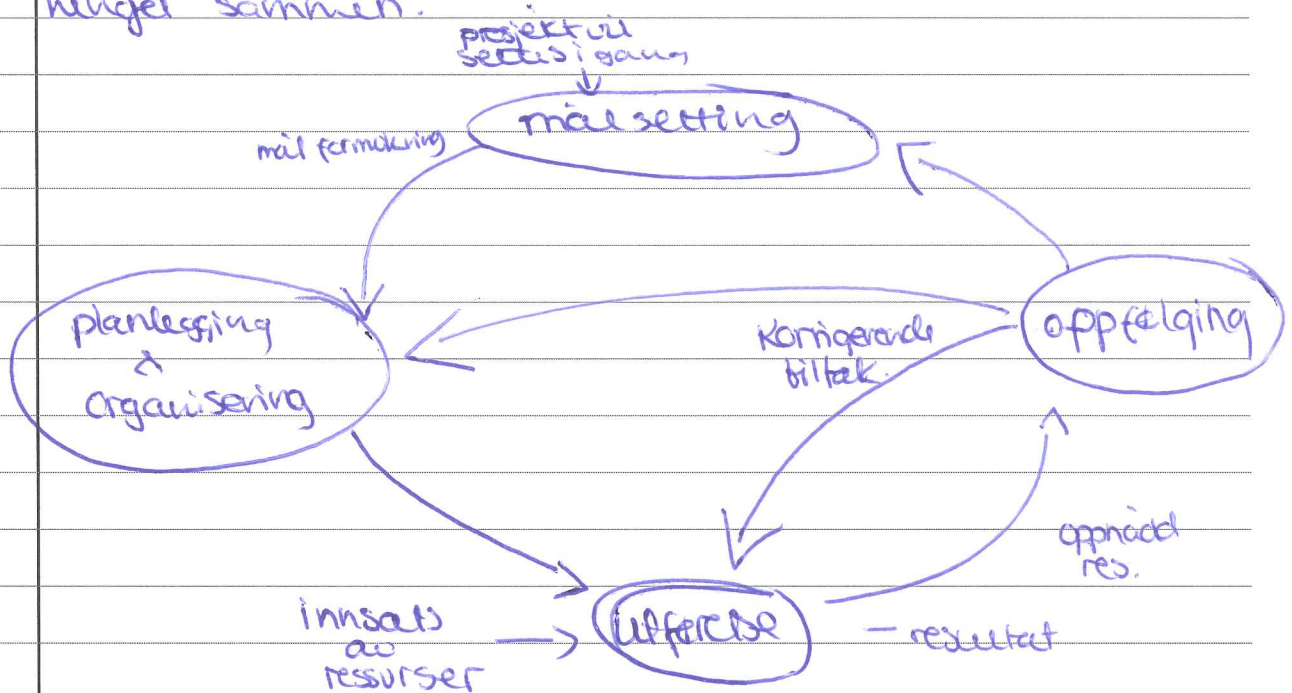 henger sammen.
prosjekt vil
settes i gang
målsetting
mål formulering
planlegging
&
organisering
Korrigerende
tiltak.
oppfølging
oppnådd
res.
innsats
av
ressurser
utførelse
- resultat